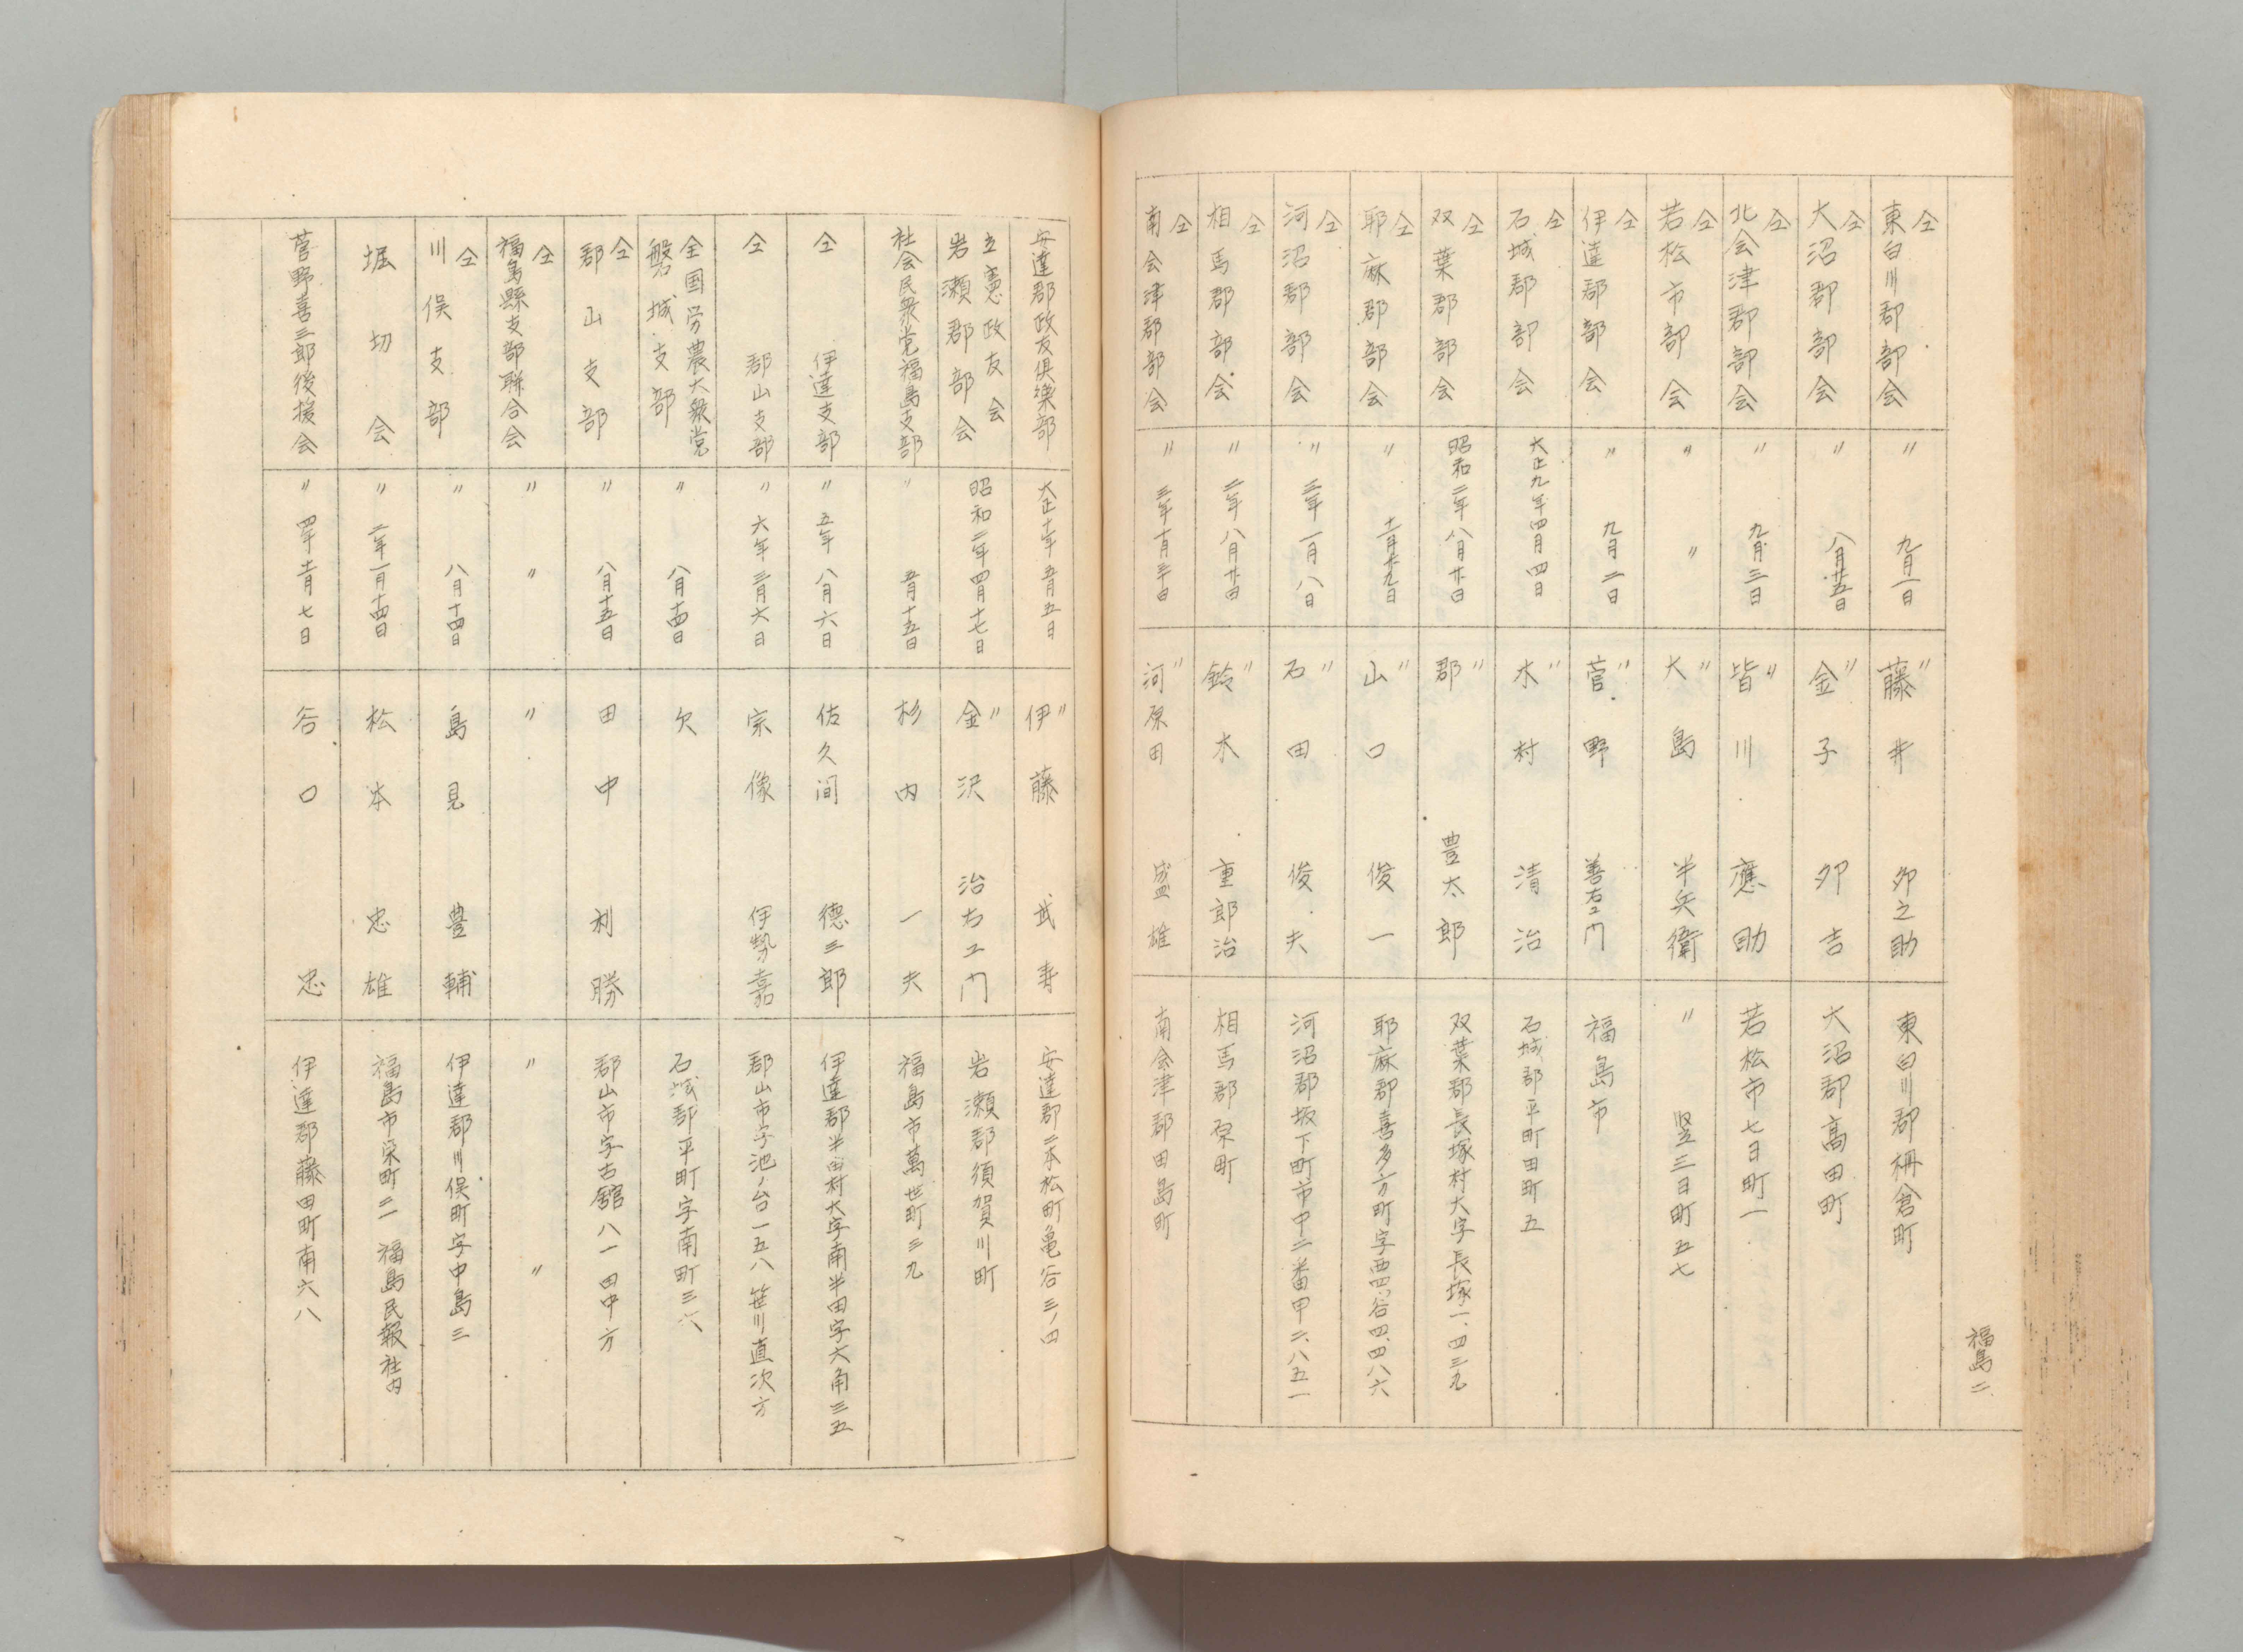 福島二
仝 東白川郡部会 〃 九月一日 〃 藤井 卯之助 東白川郡棚倉町
仝 大沼郡部会 〃 八月廿五日 〃 金子 卯吉 大沼郡高田町
仝 北会津郡部会 〃 九月三日 〃 皆川 應助 若松市七日町一
仝 若松市部会 〃 〃 〃 大島 半兵衛 〃 竪三日町五七
仝 伊達郡部会 〃 九月二日 〃 菅野 善右エ門 福島市
仝 石城郡部会 大正九年四月四日 〃 木村 清治 石城郡平町田町五
仝 双葉郡部会 昭和二年八月廿日 〃 郡 豊太郎 双葉郡長塚村大字長塚一、四三九
仝 耶麻郡部会 〃 十一月廿九日 〃 山口 俊一 耶麻郡喜多方町字西四ツ谷四、四八六
仝 河沼郡部会 〃 三年一月八日 〃 石田 俊夫 河沼郡坂下町市中二番甲二、八五一
仝 相馬郡部会 〃 二年八月廿日 〃 鈴木 重郎治 相馬郡原町
仝 南会津郡部会 〃 三年十月三十日 〃 河原田 盛雄 南会津郡田島町
安達郡政友倶楽部 大正十年五月五日 〃 伊藤 武寿 安達郡二本松町亀谷三ノ四
立憲政友会 岩瀬郡部会 昭和二年四月十七日 〃 金沢 治右エ門 岩瀬郡須賀川町
社会民衆党福島支部 〃 五月十五日 杉内 一夫 福島市萬世町三九
仝 伊達支部 〃 五年八月六日 佐久間 徳三郎 伊達郡半田村大字南半田字六角三五
仝 郡山支部 〃 六年三月六日 宗像 伊勢嘉 郡山市字池ノ台一五八 笹川直次方
全国労農大衆党 磐城支部 〃 八月十四日 欠 石城郡平町字南町三六
仝 郡山支部 〃 八月十五日 田中 利勝 郡山市字古舘八一 田中方
仝 福島縣支部聯合会 〃 〃 〃 〃 〃
仝 川俣支部 〃 八月十四日 島見 豊輔 伊達郡川俣町字中島三
堀切会 〃 二年一月十四日 松本 忠雄 福島市栄町二一 福島民報社内
菅野喜三郎後援会 〃 四年十一月七日 谷口 忠 伊達郡藤田町南六八